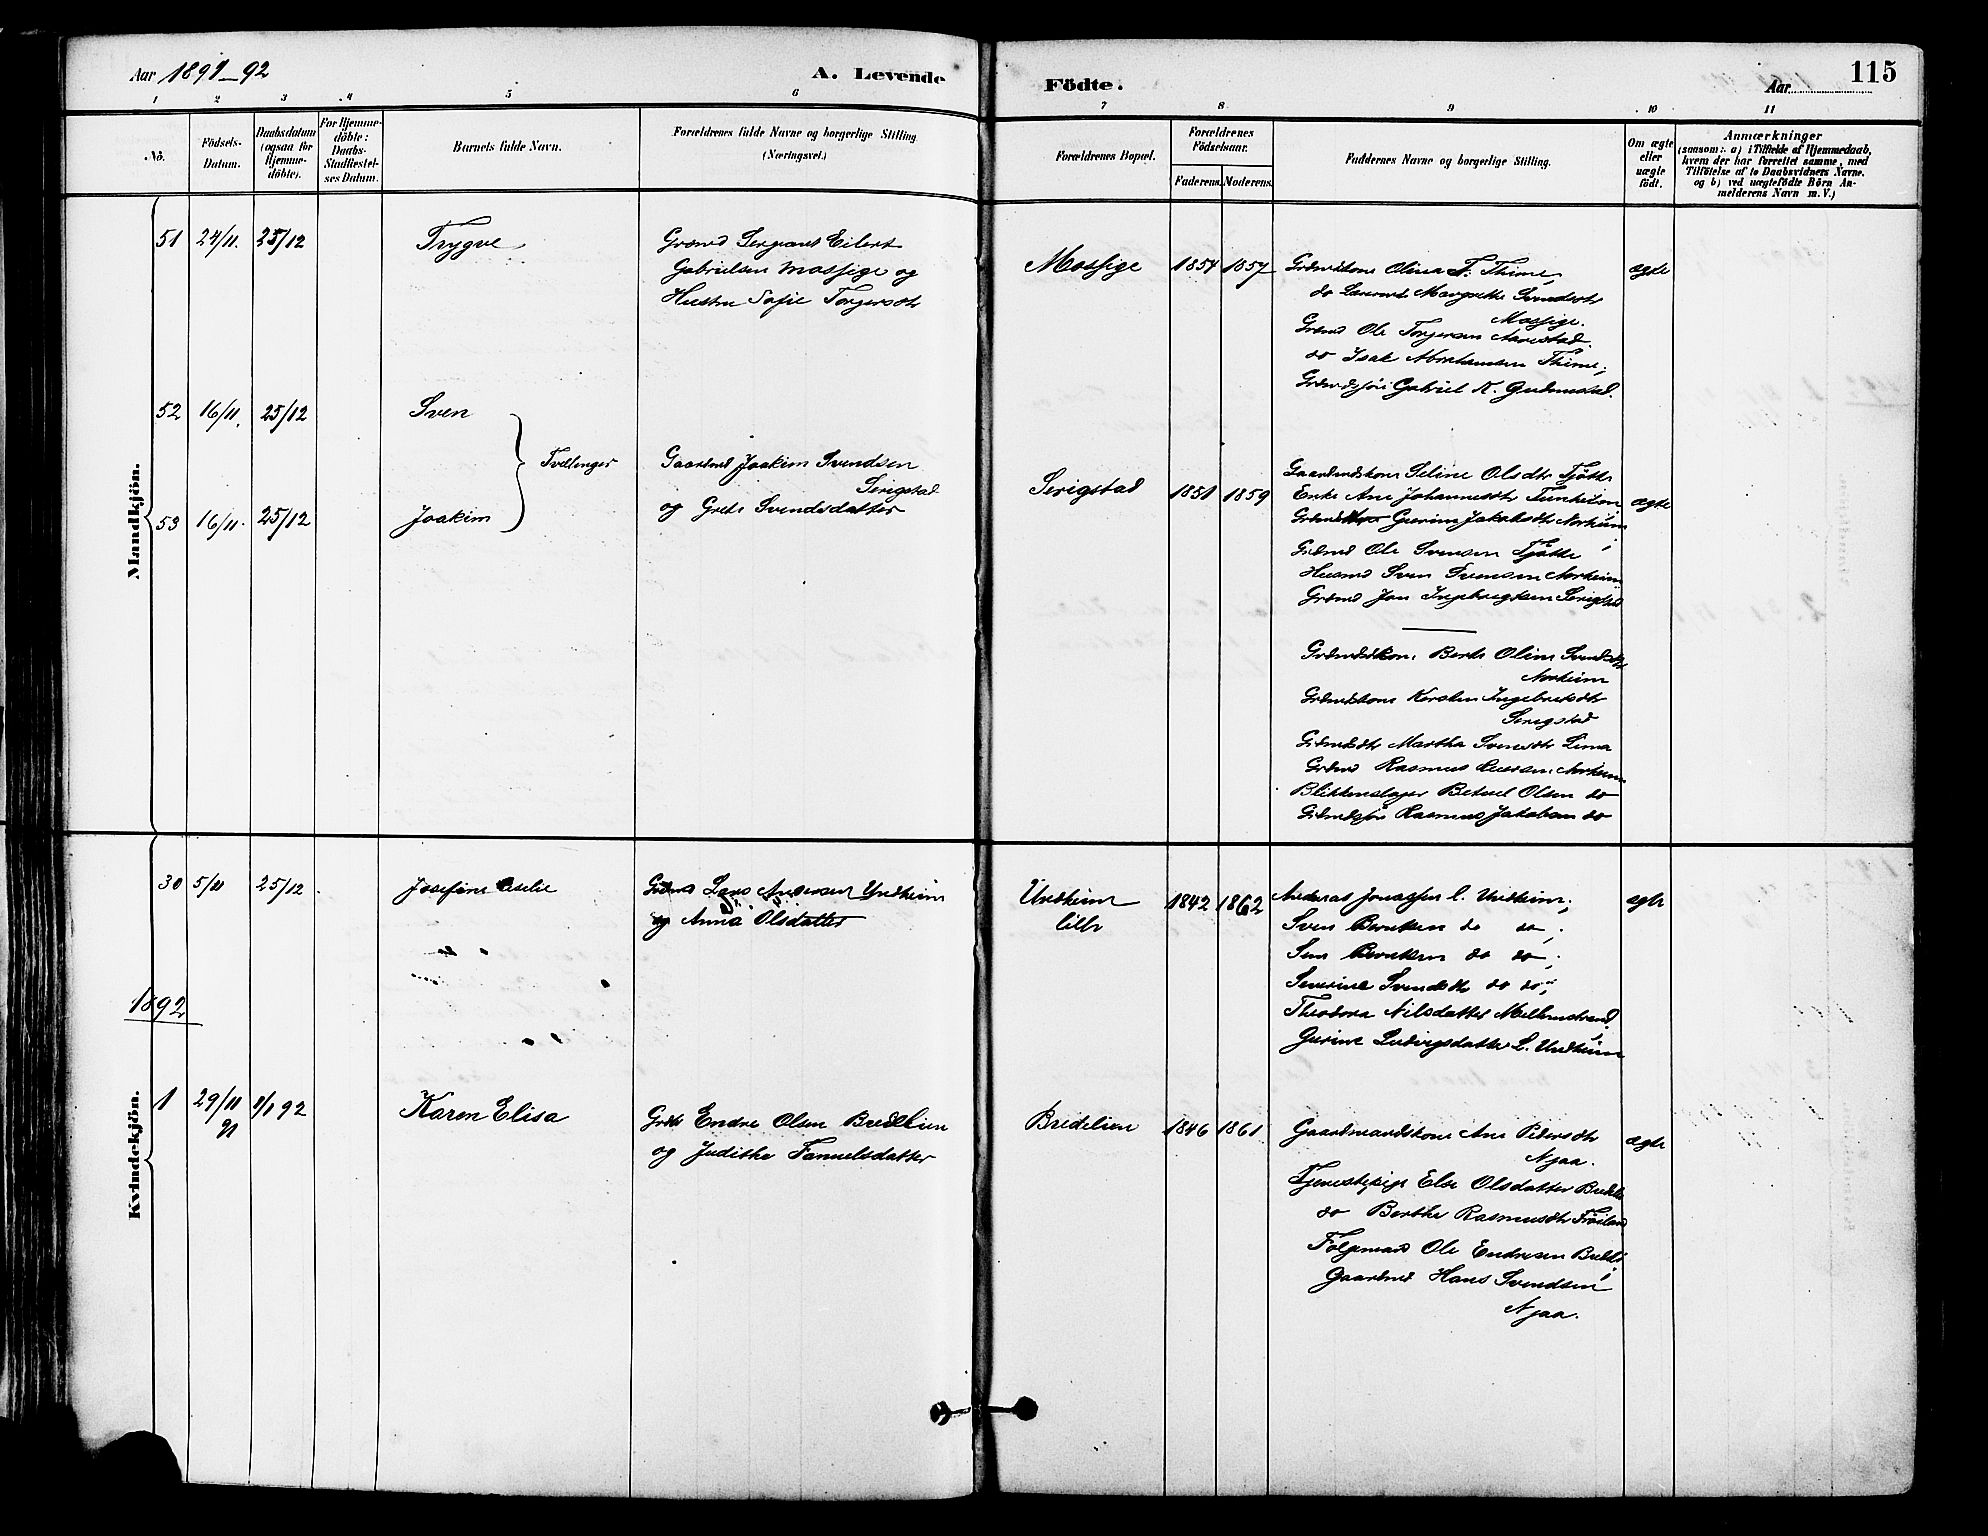 Aar 1891-92
A. Levende
Födte.
Aar
115
1 2 3 4 5 6 7 8 9 10 11
Nö.
Födsels-
Datum.
Daabsdatum
(ogsaa for
Hjemme-
döbte).
For Hjemme-
döbte:
Daabs-
Stadfæstel-
ses Datum.
Barnets fulde Navn.
Forældrenes fulde Navne og borgerlige Stilling.
(Næringsvei.)
Forældrenes Bopæl.
Forældrenes
Födselsaar.
Faderens. Moderens.
Faddernes Navne og borgerlige Stilling.
Om ægte
eller
uægte
födt.
Anmærkninger
(saasom: a) i Tilfælde af Hjemmedaab,
hvem der har forrettet samme, med
Tilföielse af to Daabsvidners Navne.
og b) ved uægtefödte Börn An-
melderens Navn m. V.)
Mandkjön.
51 24/11. 25/12 Trygve
Grdmd Sergeant Eilert
Gabrielsen Mossige og
Hustru Sofie Torgersdtr
Mossige 1857 1857
Grdmdskone Olina T. Thime,
do Margrethe Svendsdtr
Mossige.
Grdmd Ole Torgersen Aarestad.
do Isak Abrahamsen Thime,
Gabriel K. Gudmestad.
ægte
52 16/11. 25/12 Sven
53 16/11. 25/12 Joakim
Tvillinger
Gaardmd Joakim Svendsen
Serigstad
og Grete Svendsdatter
Serigstad 1851 1859
Gaardmdskone Seline Olsdtr Tjøtte
Enke Ane Johannesdtr
Gurine Jakobsdtr Norheim
Grdmd Ole Svensen Tjøtte
Husmd Sven Svensen Norheim
Grdmd Jon Ingebrigtsen Serigstad
ægte
Grdmdskone Berte Oline Svendsdtr
Norheim
Grdmdskone Karsten Ingebretsdtr
Serigstad
Grdmdsdtr Martha Svensdtr Lima
Grdmd Rasmus Norheim
Blikkenslager Betuel Olsen do
Rasmus Jakobsen do
Kvindekjön.
30 5/11 25/12. Josefine Aselie
Grdmd Lars Andersen Undheim
og Anna Olsdatter
Undheim
lille
1842 1862
Anderas Jonassen l. Undheim,
Sven Berntsen do do,
Sem Berntsen do do,
Severine Svendsdtr do do,
Theodora Nilsdatter Mellemstrand,
Gurine Ludvigsdatter L. Undheim
ægte
1892
1 29/11 91 1/1 92 Karen Elisa
Grdb Endre Olsen Bredelien
og Judithe Fanuelsdatter
Bredelien 1846 1861
Gaardmandskone Ane Pedersdtr
Njaa.
Tjenestepige Else Olsdatter Bredeli
do Berthe Rasmusdtr Frøiland
Følgemand Ole Endresen Bredeli
Gaardmd Hans Svendsen
Njaa.
ægte